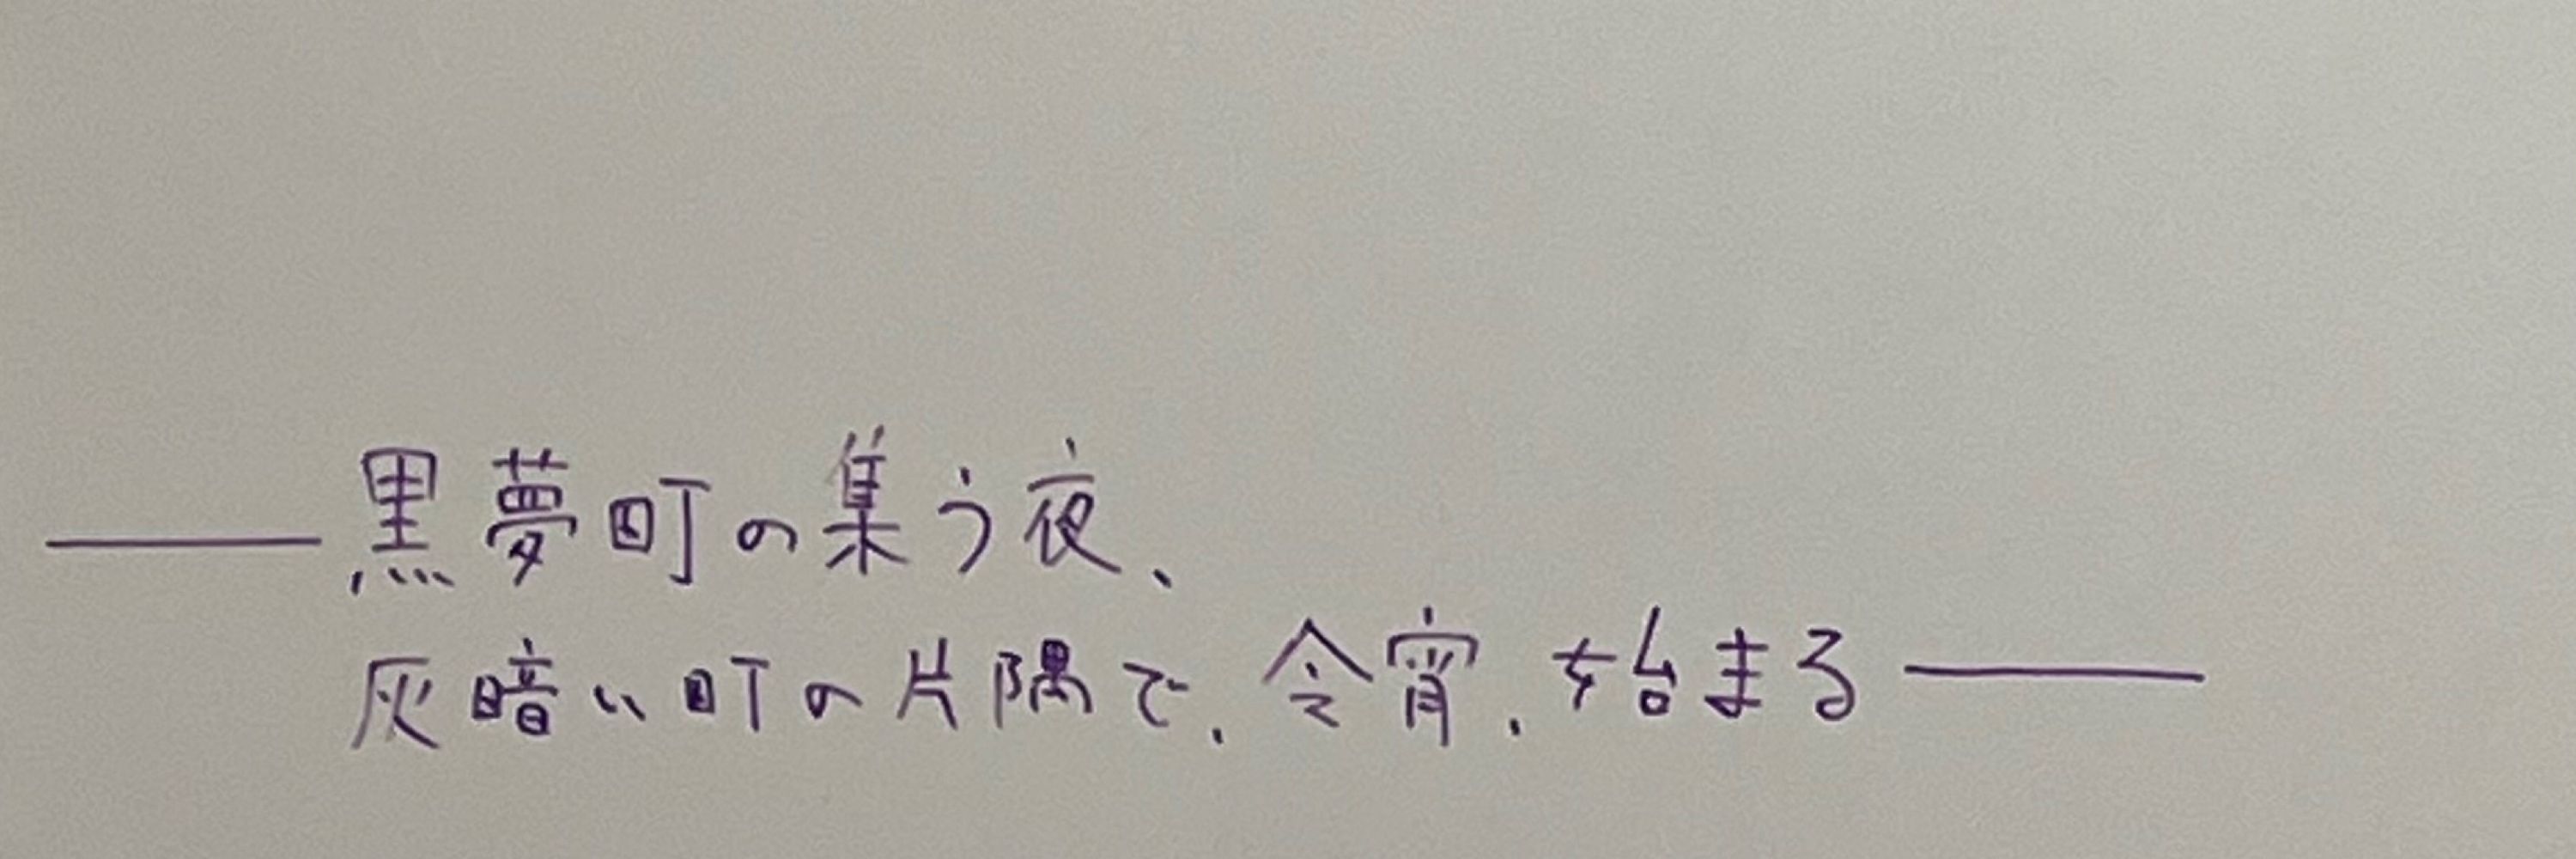 ――黒夢町の集う夜、
灰暗い町の片隅で、今宵、始まる――